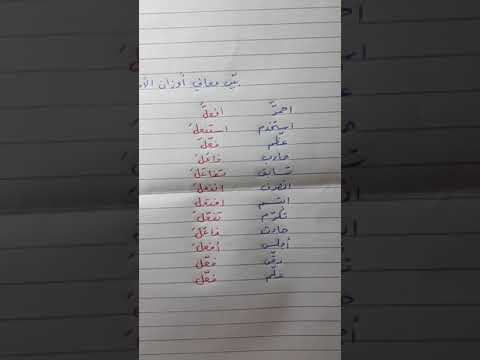 بيّن معاني أوزان الأ
احمرّ افعلّ
استخدم استفعلَ
عظّم فعّلَ
حارب فاعلَ
تسابق تفاعلَ
انصرف انفعلَ
ابتسم افتعلَ
تكرّم تفعّلَ
فاعَلَ
أجلس أفعلَ
فعّلَ
علّم فعّلَ